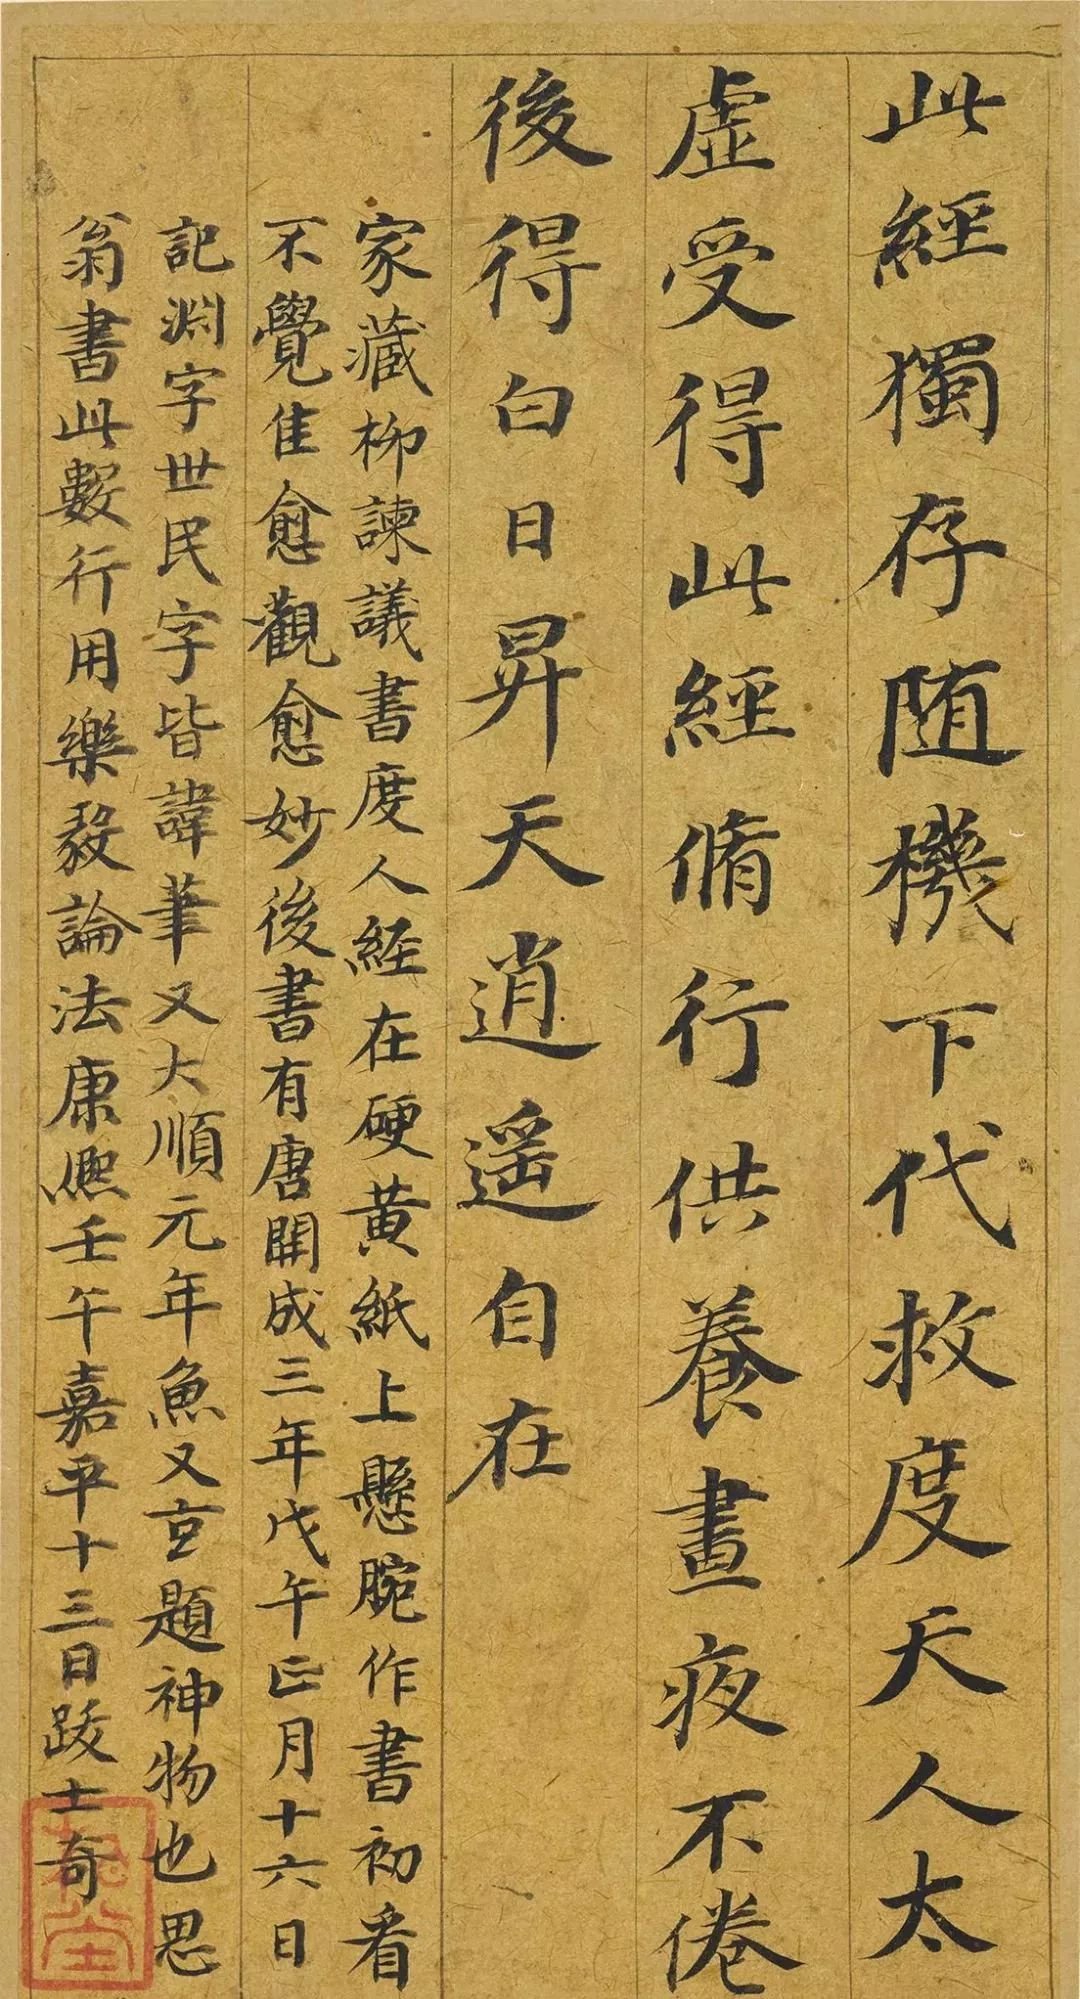 此經獨存随機下代救度天人太
虛受得此經脩行供養晝夜不倦
後得白日昇天逍遥自在
家藏柳諫議書度人經在硬黃紙上懸腕作書初看
不覺隹愈觀愈妙後書有唐開成三年戊午正月十六日
記淵字世民字皆諱筆又大順元年魚又玄題神物也思
翁書此數行用樂毅論法康熙壬午嘉平十三日跋士奇